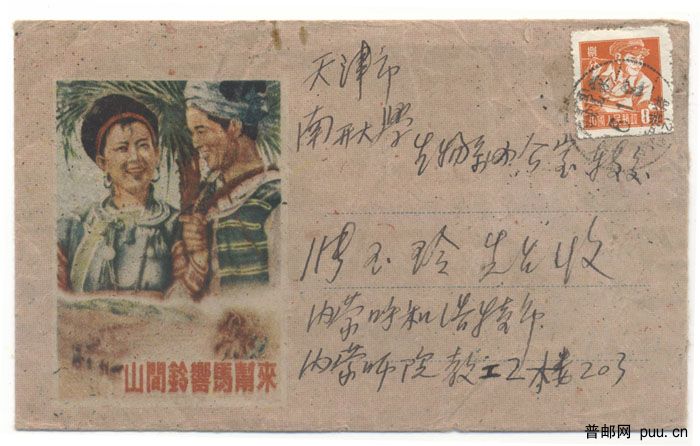 天津市
南开大學
生物系办公室 转交
玉玲 先生 收
内蒙呼和浩特市
内蒙师院 教工2楼203
山間鈴響馬幫來
8
中國人民郵政
普邮网 puu.cn